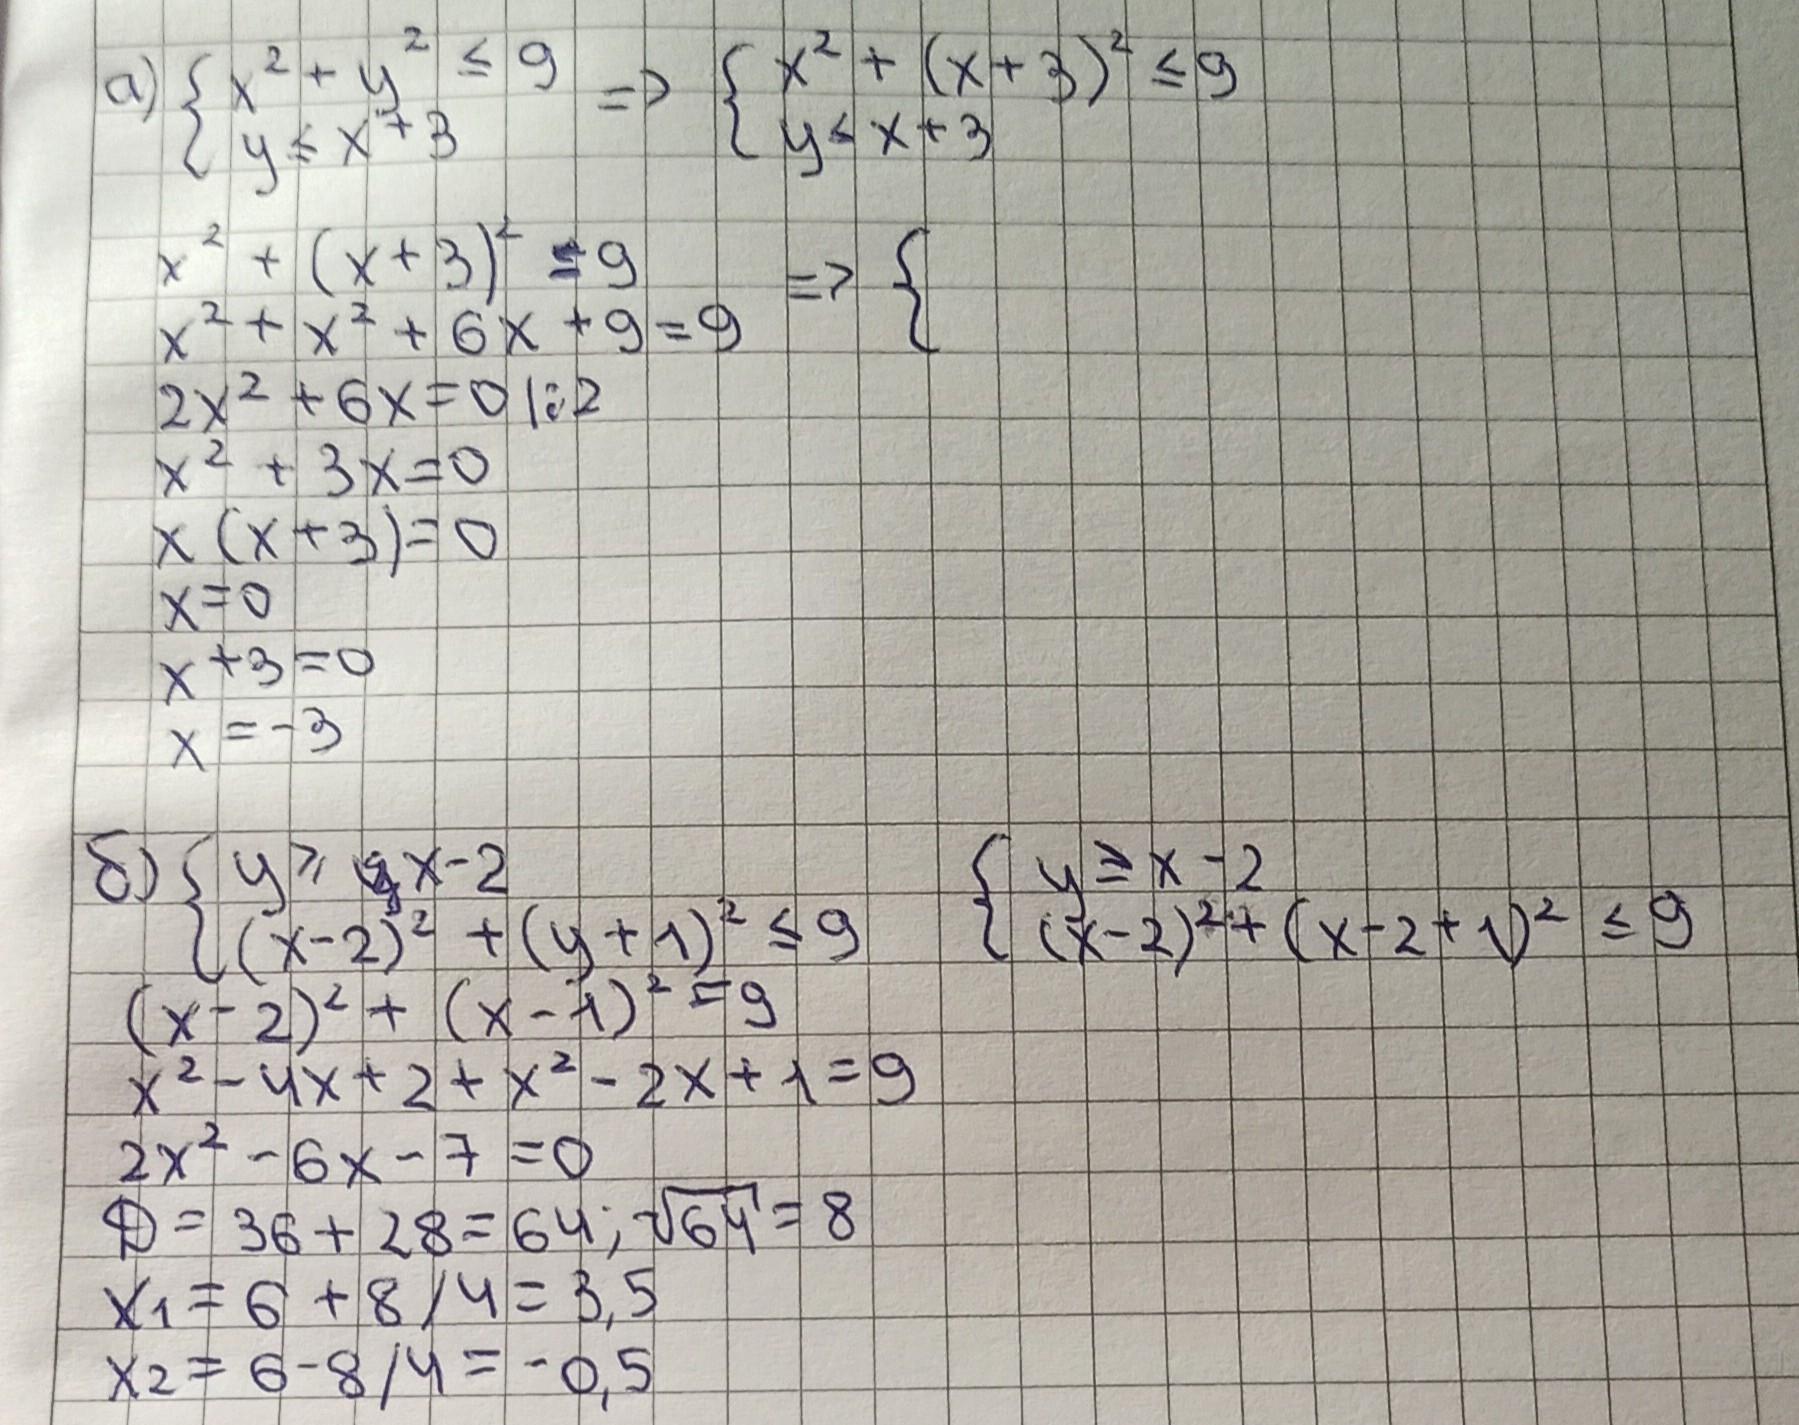 а) { x² + y² ≤ 9 => { x² + (x+3)² ≤ 9
y ≤ x + 3 y ≤ x + 3
x² + (x+3)² = 9 => {
x² + x² + 6x + 9 = 9
2x² + 6x = 0 |:2
x² + 3x = 0
x (x+3) = 0
x = 0
x + 3 = 0
x = -3
б) { y ≥ x - 2 { y ≥ x - 2
(x-2)² + (y+1)² ≤ 9 (x-2)² + (x-2+1)² ≤ 9
(x-2)² + (x-1)² = 9
x² - 4x + 2 + x² - 2x + 1 = 9
2x² - 6x - 7 = 0
D = 36 + 28 = 64; √64 = 8
x1 = 6 + 8 / 4 = 3,5
x2 = 6 - 8 / 4 = -0,5